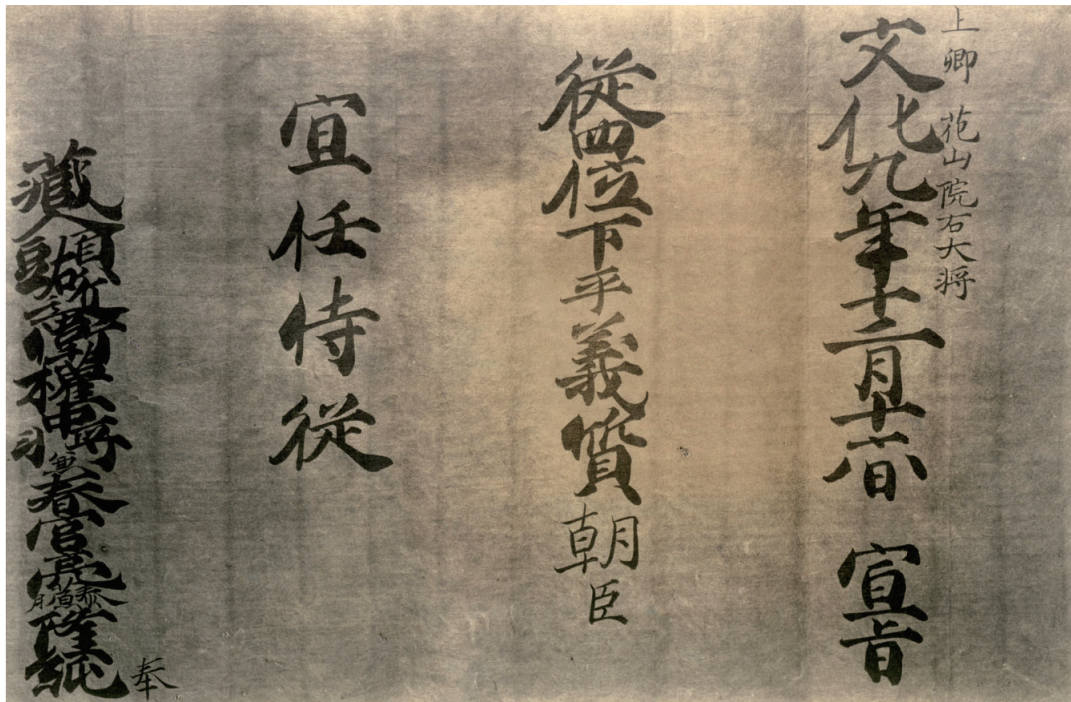 上卿 花山院右大将
文化九年十二月十六日 宣旨
從四位下平義質朝臣
宜任侍從
藏人頭右近衛權中將兼春宮亮藤原隆純奉